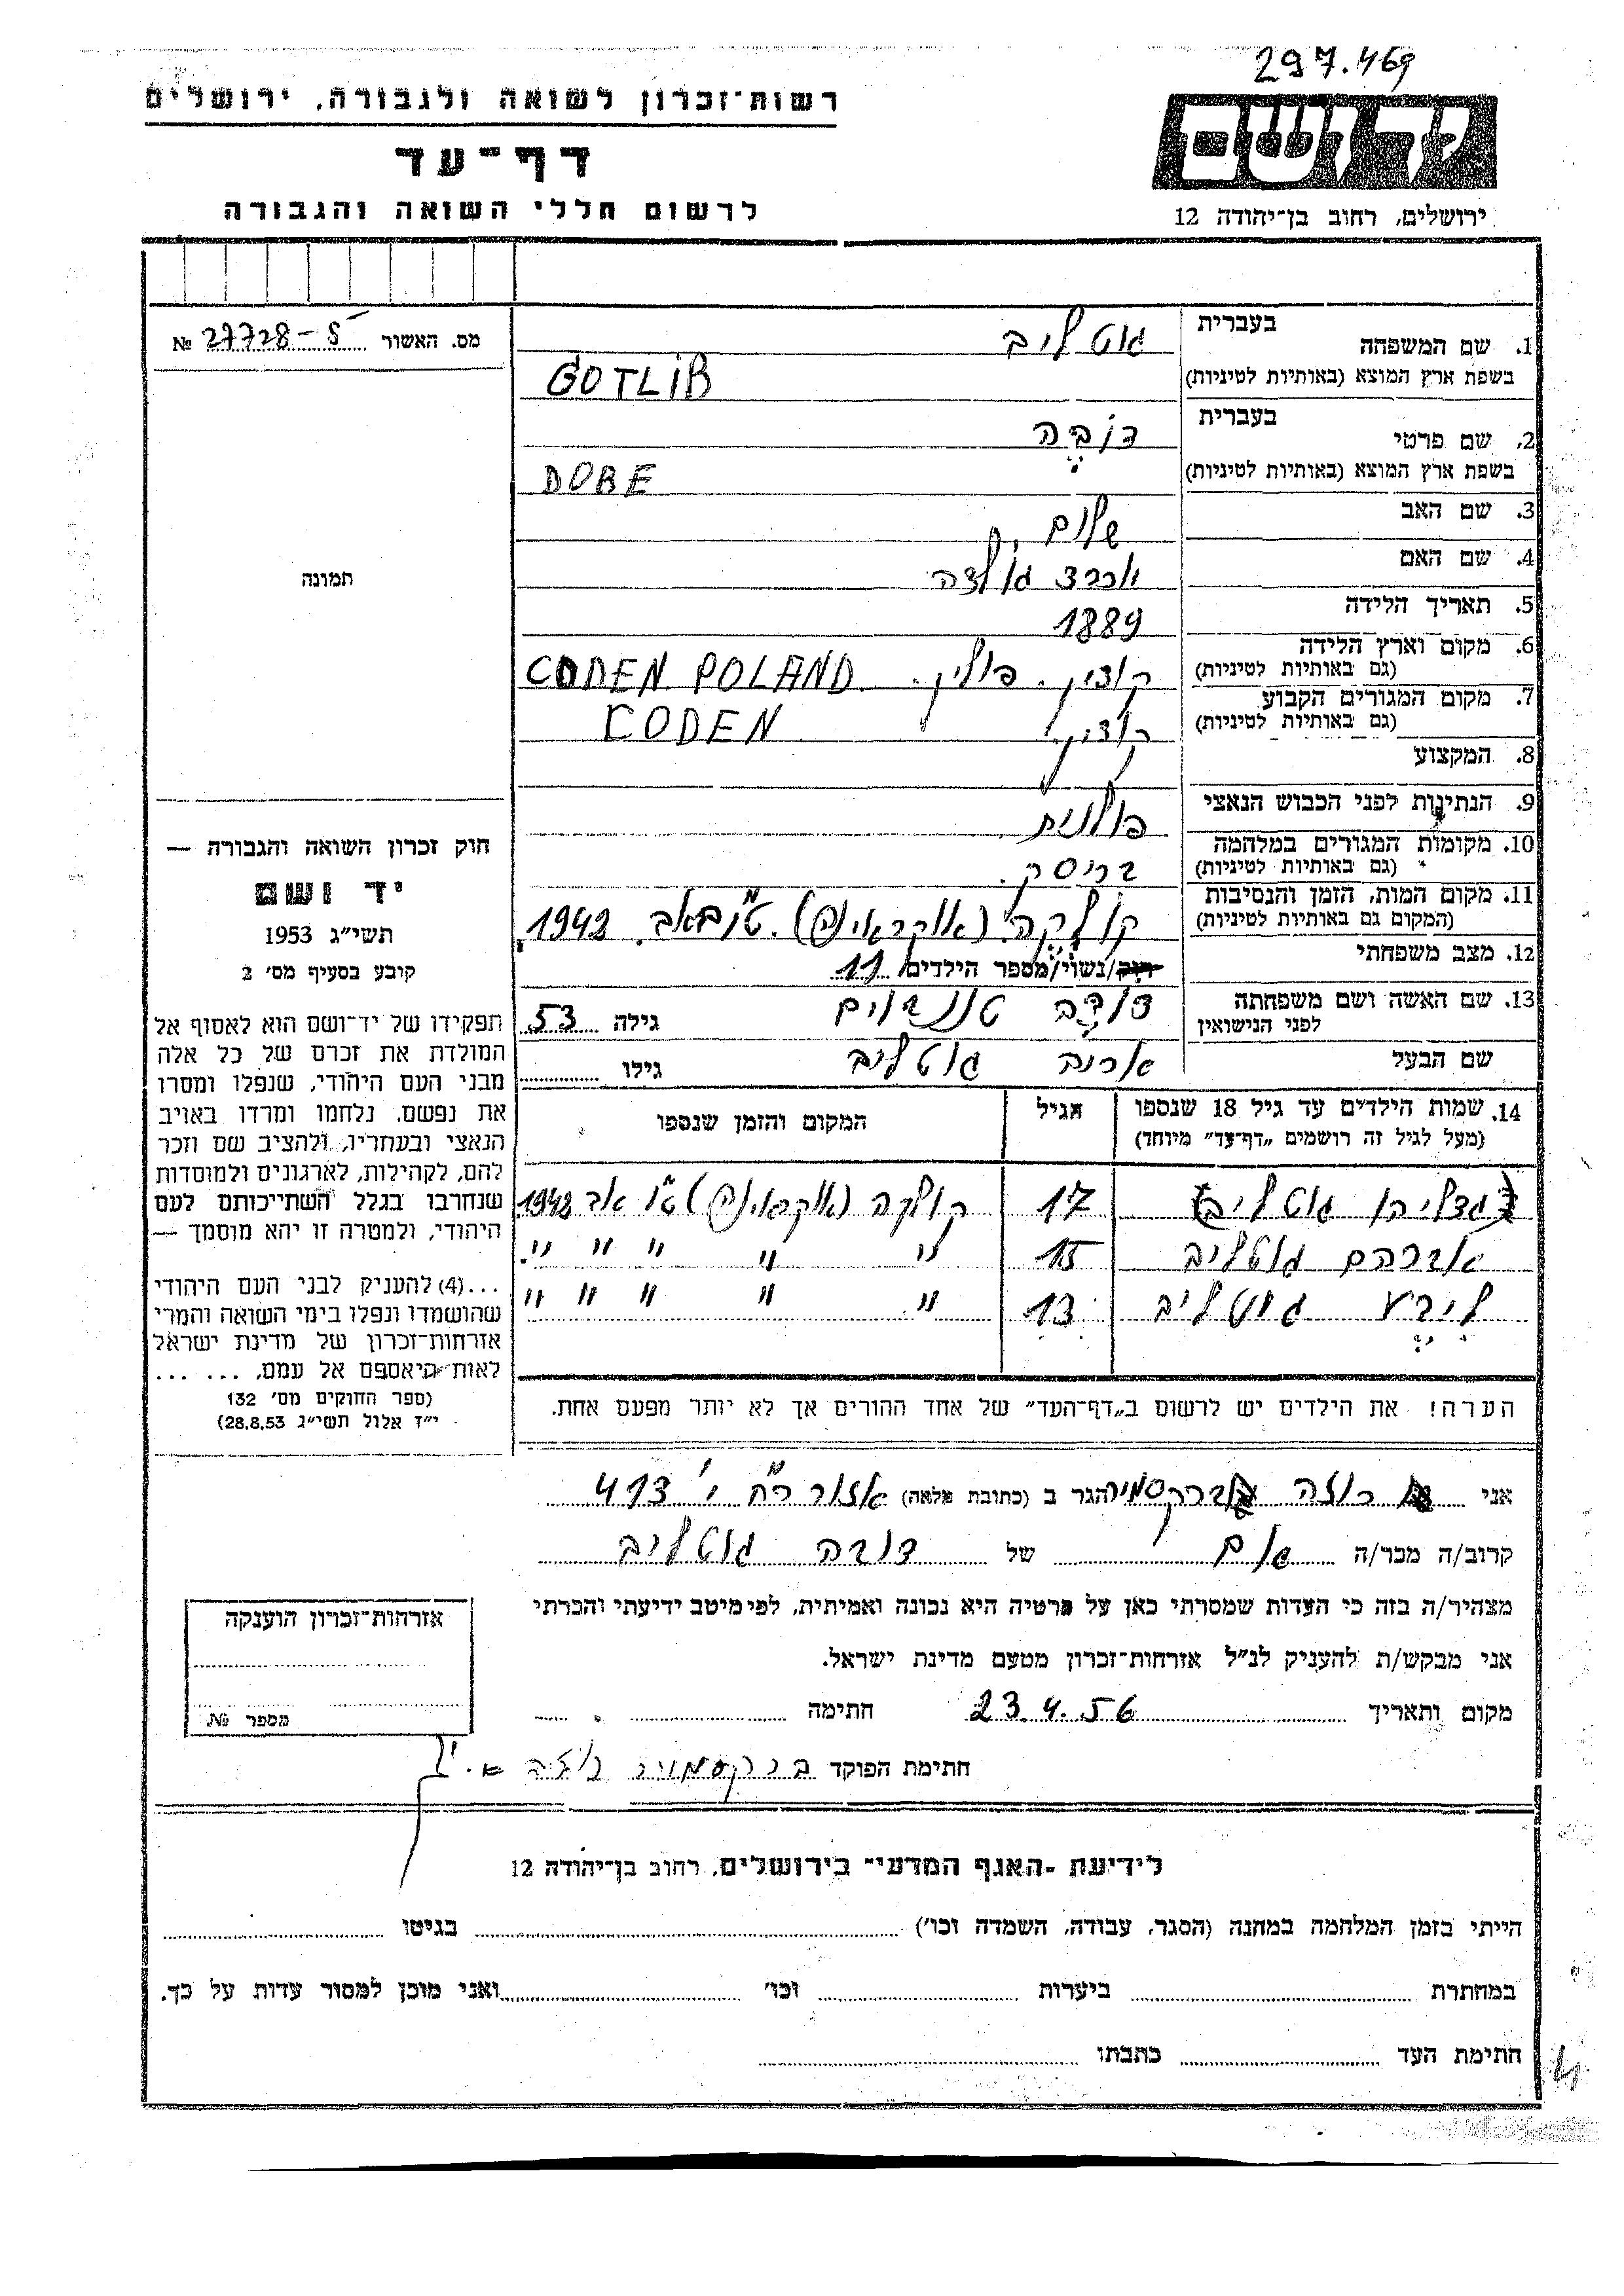 297.469
רשות־זכרון לשואה ולגבורה, ירושלים
דף־עד
לרשום חללי השואה והגבורה
ידושם
ירושלים, רחוב בן־יהודה 12
מס. האשור 27728-5 №
1. שם המשפחה
בעברית גוטליב
בשפת ארץ המוצא (באותיות לטיניות) GOTLIB
2. שם פרטי
בעברית דובה
בשפת ארץ המוצא (באותיות לטיניות) DOBE
3. שם האב שלום
4. שם האם גולדה
5. תאריך הלידה 1889
6. מקום וארץ הלידה
(גם באותיות לטיניות) קודין. פולין. CODEN POLAND
7. מקום המגורים הקבוע
(גם באותיות לטיניות) קודין. CODEN
8. המקצוע
9. הנתינות לפני הכבוש הנאצי פולנית
10. מקומות המגורים במלחמה
(גם באותיות לטיניות) בריסק.
11. מקום המות, הזמן והנסיבות
(המקום גם באותיות לטיניות) קולקה (אוקראינה). ט"ו באב. 1942.
12. מצב משפחתי רוק/נשוי/מספר הילדים 11
13. שם האשה ושם משפחתה
לפני הנישואין דובה גילה 53
שם הבעל אריה גוטליב גילו
14. שמות הילדים עד גיל 18 שנספו
(מעל לגיל זה רושמים „דף־עד” מיוחד)
הגיל
המקום והזמן שנספו
גדליהו גוטליב 17 קולקה (אוקראינה) ט"ו אב 1942
אברהם גוטליב 15 " " " " ".
ליבע גוטליב 13 " " " " "
הערה! את הילדים יש לרשום ב„דף־העד” של אחד ההורים אך לא יותר מפעם אחת.
תמונה
חוק זכרון השואה והגבורה —
יד ושם
תשי״ג 1953
קובע בסעיף מס׳ 2
תפקידו של יד־ושם הוא לאסוף אל
המולדת את זכרם של כל אלה
מבני העם היהודי, שנפלו ומסרו
את נפשם, נלחמו ומרדו באויב
הנאצי ובעוזריו, ולהציב שם וזכר
להם, לקהילות, לארגונים ולמוסדות
שנחרבו בגלל השתייכותם לעם
היהודי, ולמטרה זו יהא מוסמך —
...(4) להעניק לבני העם היהודי
שהושמדו ונפלו בימי השואה והמרי
אזרחות־זכרון של מדינת ישראל
לאות היאספם אל עמם, ... ...
(ספר החוקים מס׳ 132
י״ז אלול תשי״ג 28.8.53)
אני רוזה הגר ב (כתובת מלאה) אזור 413
קרוב/ה מכר/ה של דובה גוטליב
מצהיר/ה בזה כי העדות שמסרתי כאן על פרטיה היא נכונה ואמיתית, לפי מיטב ידיעתי והכרתי
אני מבקש/ת להעניק לנ״ל אזרחות־זכרון מטעם מדינת ישראל.
מקום ותאריך 23.4.56 חתימה
חתימת הפוקד
אזרחות־זכרון הוענקה
מספר №
לידיעת ־האגף המדעי־ בירושלים, רחוב בן־יהודה 12
הייתי בזמן המלחמה במחנה (הסגר, עבודה, השמדה וכו׳) בגיטו
במחתרת ביערות וכו׳ ואני מוכן למסור עדות על כך.
חתימת העד כתבתו